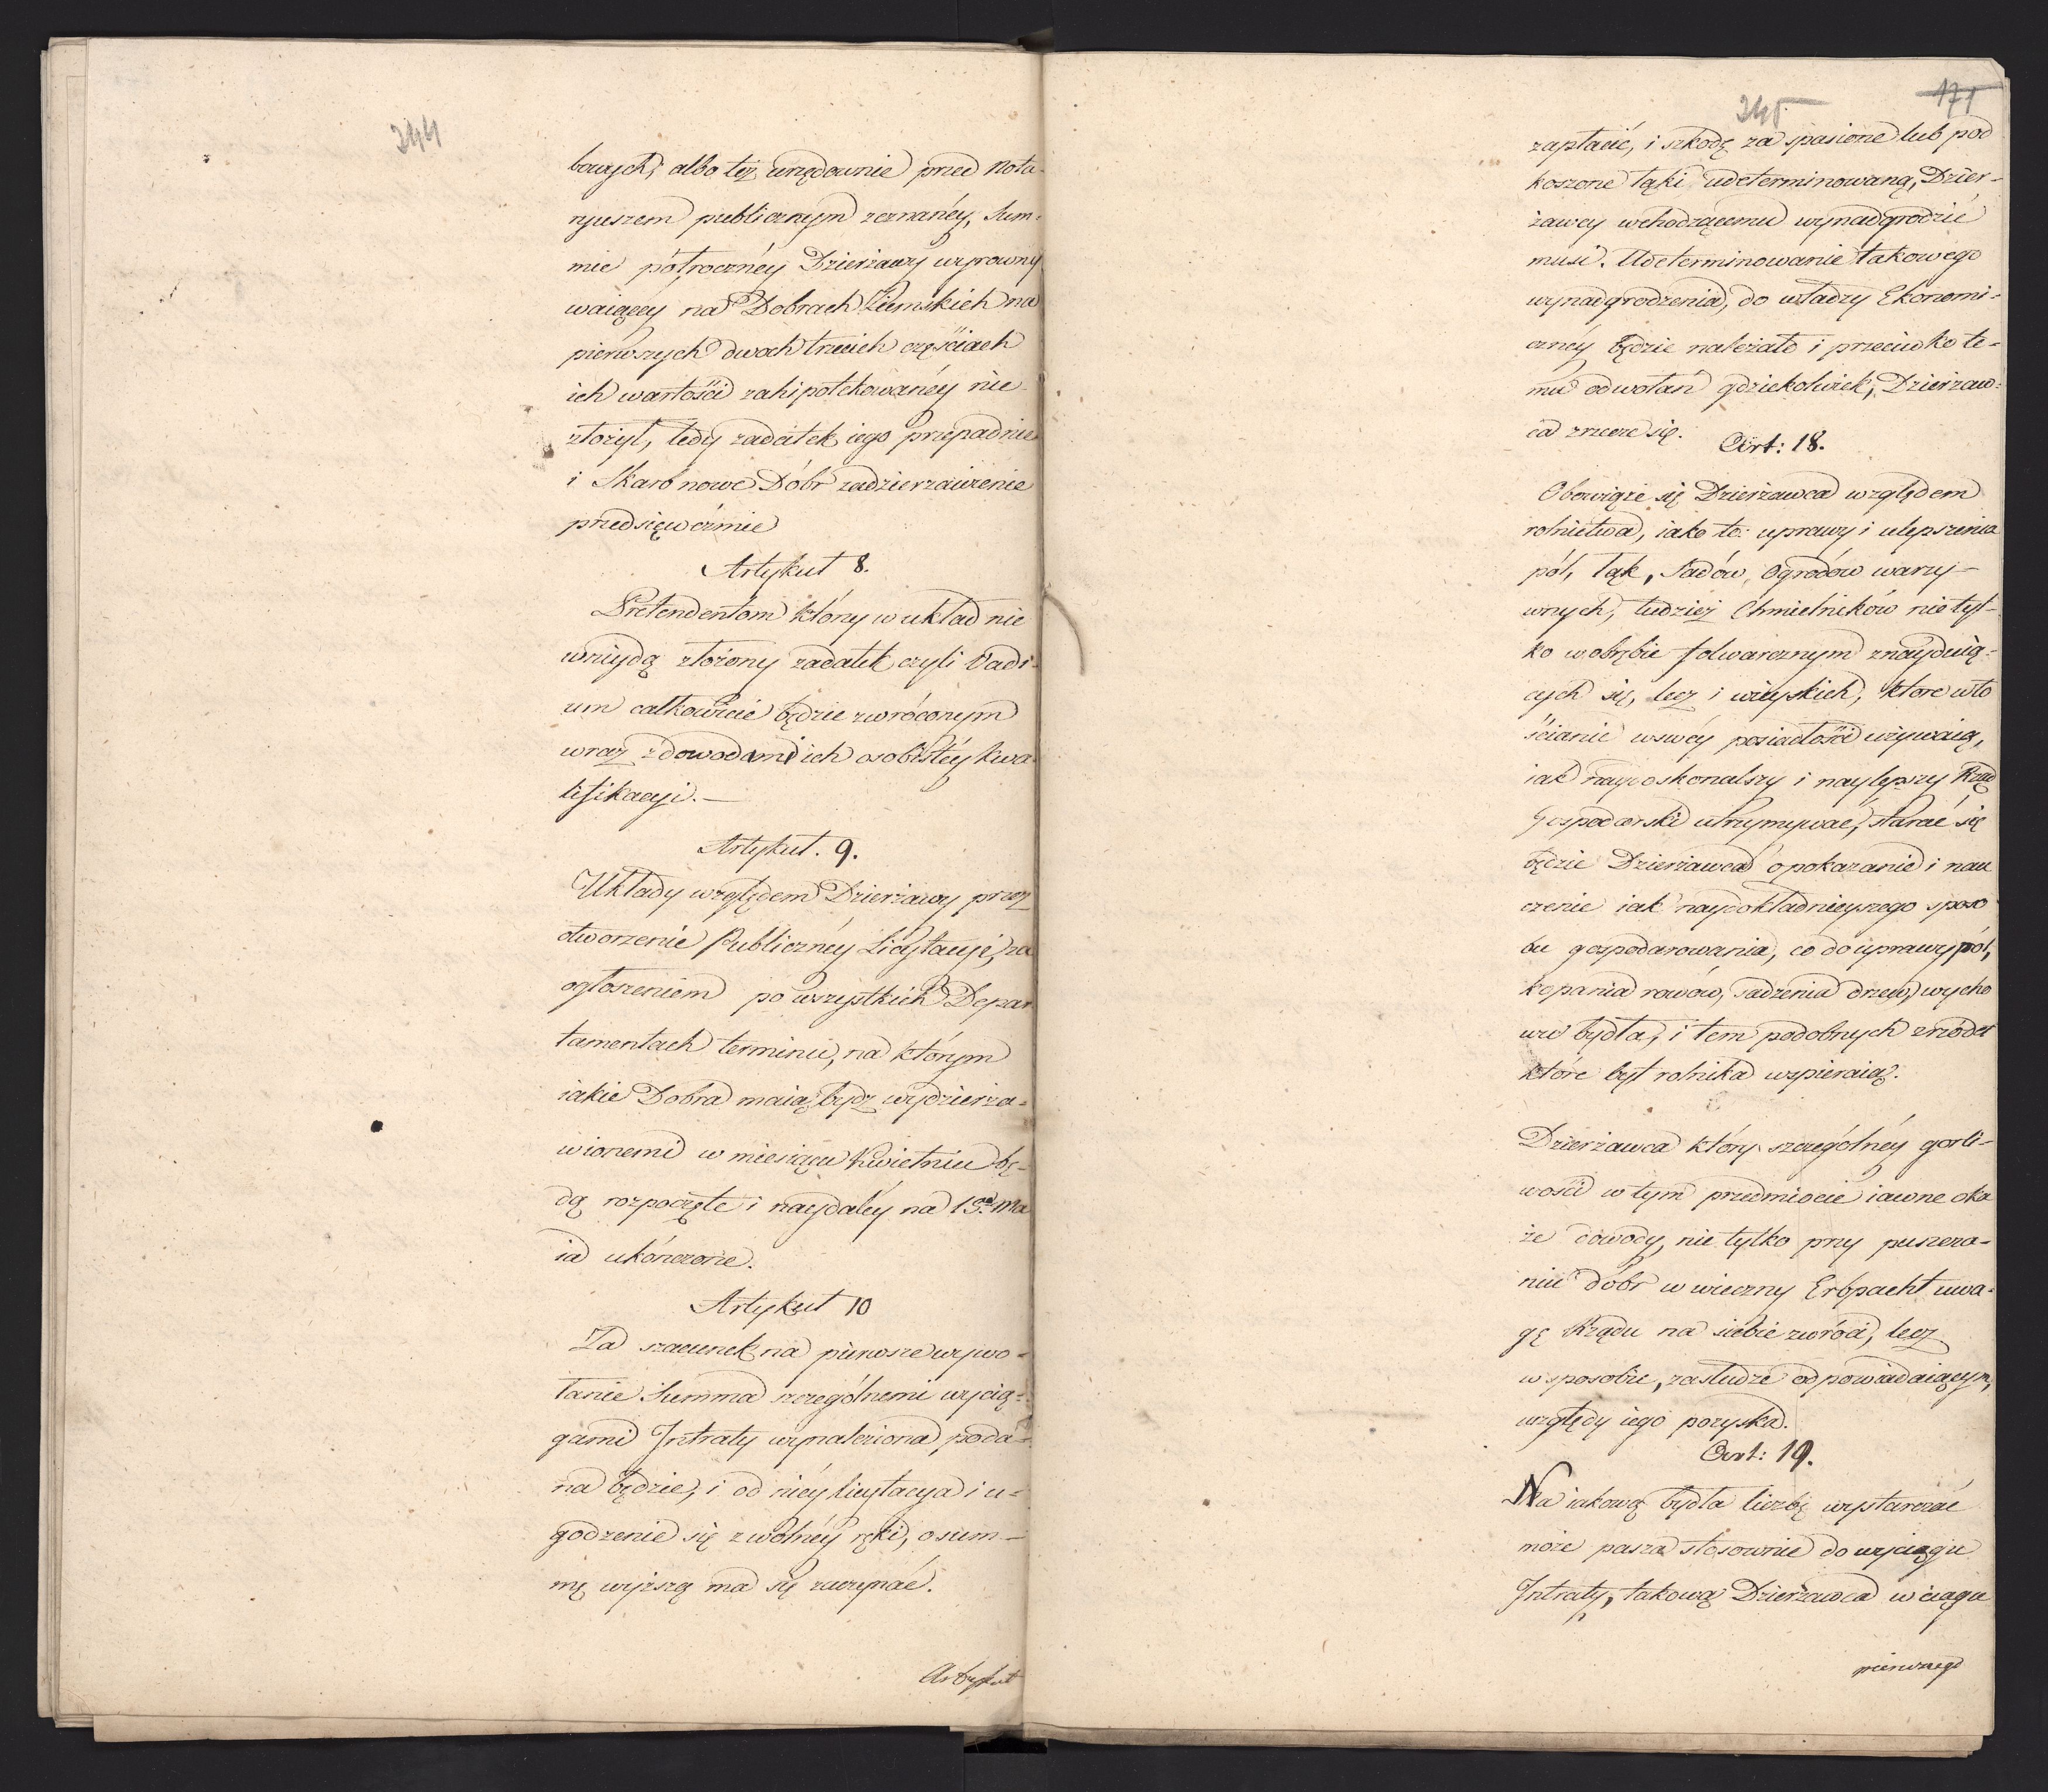 244
bowych, albo też urzędownie przed Nota-
ryuszem publicznym zeznanéy, Sum-
mie półrocznéy Dzierżawy wyrowny
waiącéy na Dobrach Ziemskich na
piérwszych dwóch trzecich częściach
ich wartości zahipotekowanéy nie
złożył, tedy zadatek iego przepadnie
i Skarb nowe Dóbr zadzierzawienie
przedsięweźmie
Artykuł 8.
Pretendentom który w układ nie
wniydą złożony zadatek czyli Vadi-
um całkowicie będzie zwróconym
wraz z dowodami ich osobistéy kwa-
lifikacyi.—
Artykuł. 9.
Układy względem Dzierżawy przez
otworzenie Publicznéy Licytacyi, za
ogłoszeniem po wszystkich Depar
tamentach terminu, na którym
iakie Dobra maią bydz wydzierża-
wionemi w miesiącu Kwietniu bę-
dą rozpoczęte i naydaléy na 15. Ma
ia ukończone.
Artykuł 10
Za szacunek na pierwsze wywo-
łanie Summa szczególnemi wycią-
gami Intraty wynaleziona poda-
na będzie, i od niéy licytacya i u-
godzenie się z wolnéy ręki, o sum-
mę wyższą ma się zaczynać.
Artykuł
245
171
zapłacić, i szkodę za spasione lub pod
koszone łąki udeterminowaną, Dzier-
żawcy wchodzącemu wynadgrodzić
musi. Udeterminowanie takowego
wynadgrodzenia, do władzy Ekonomi-
cznéy będzie należało i przeciwko te-
mu odwołań gdziekolwiek, Dzierżaw-
ca zrzecze się.
Art: 18.
Obowiąże się Dzierżawca względem
rolnictwa, iako to: uprawy i ulepszenia
pól, łąk, Sadów, Ogrodów warzy-
wnych, tudzież Chmielników nie tyl-
ko w obrębie folwarcznym znayduią-
cych się, lecz i wieyskich, które wło
ścianie w swéy posiadłości używaią,
iak naydoskonalszy i naylepszy Rząd
Gospodarski utrzymywać, starać się
będzie Dzierżawca o pokazanie i nau
czenie iak naydokładnieyszego sposo
bu gospodarowania, co do uprawy pól,
kopania rowów, sadzenia drzew, wycho
wu bydła, i tem podobnych źrzódeł
które byt rolnika wspieraią.
Dzierżawca który szczególnéy gorli-
wości w tym przedmiocie iawne oka
że dowody, nie tylko przy puszcza-
niu dóbr w wieczny Erbpacht uwa-
gę Rządu na siebie zwróci, lecz
w sposobie, zasłudze odpowiadaiącym,
względy iego pozyska.
Art: 19.
Na iakową bydła liczbę wystarczać
może pasza stosownie do wyciągu
Intraty, takową Dzierżawca w ciągu
pierwszego